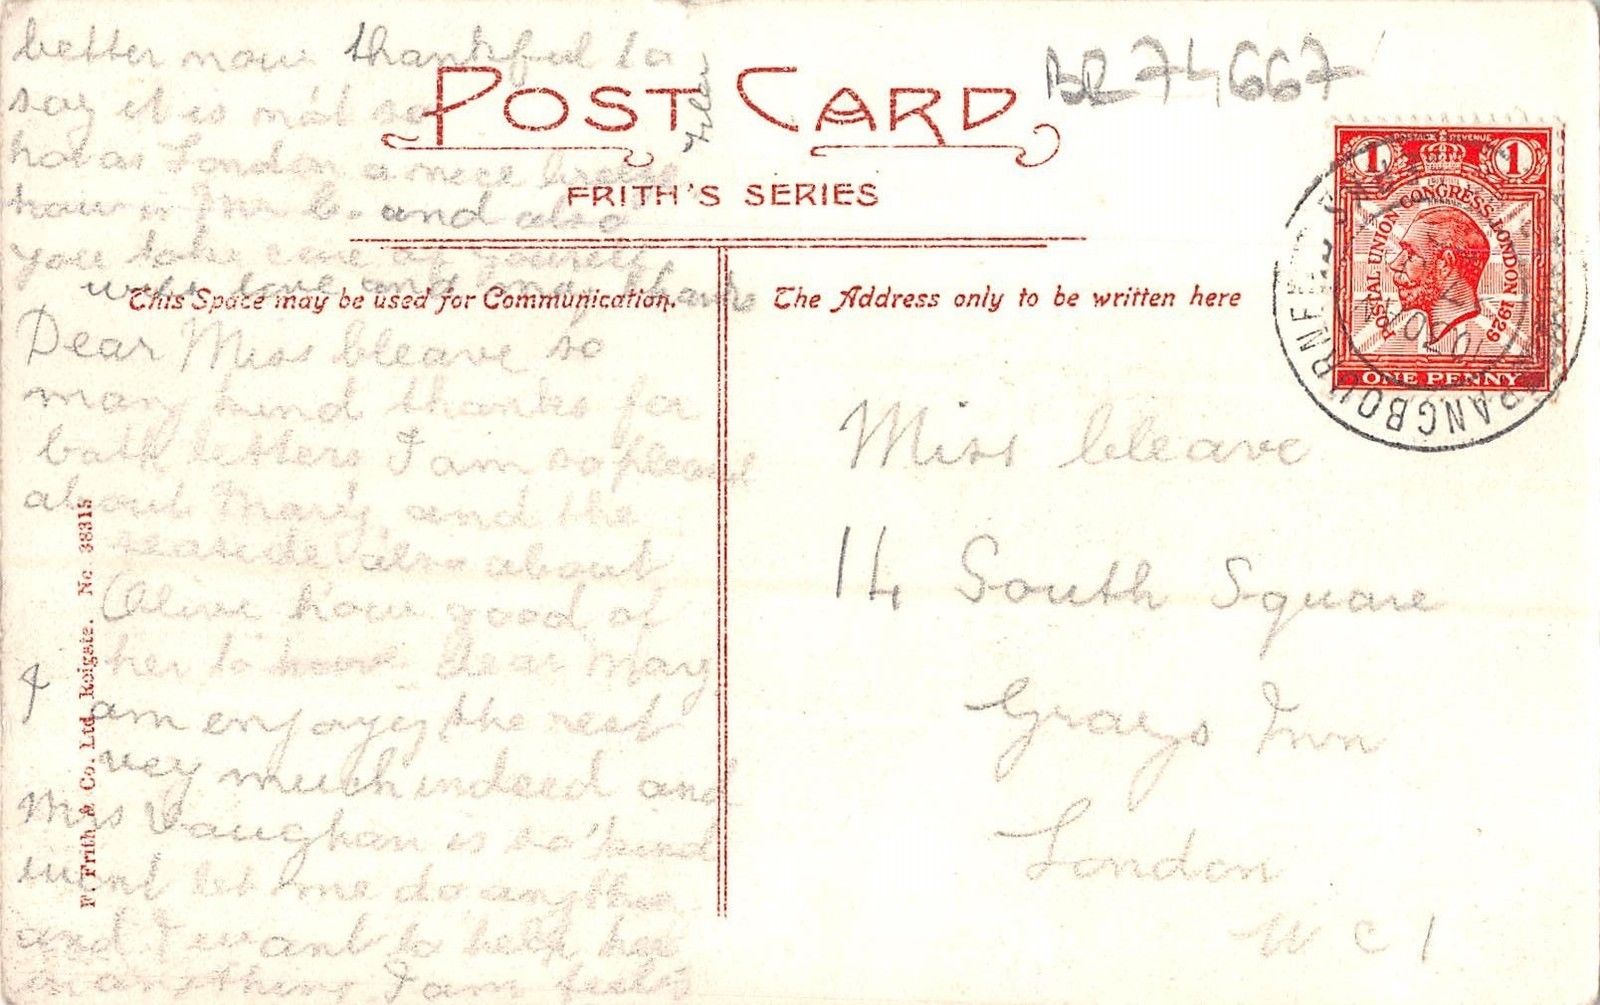 better now thankful to
say it is not so
hot as London a nice breeze
how is Mr C. and also
you take care of yourself
with love and my thanks
POST CARD
FRITH'S SERIES
BR 74667
This Space may be used for Communication.
The Address only to be written here
Dear Miss Cleave so
many kind thanks for
both letters I am so pleased
about Mary, and the
seaside also about
Olive how good of
her to dear Mary
I am enjoyeg the rest
vey much indeed and
Mrs Vaughan is so kind
wont let me do anythin
and I want to help her
in anything I am feelig
F. Frith & Co. Ltd. Reigate. No 38315
Miss Cleave
14 South Square
Grays Inn
London
W C 1
POSTAGE REVENUE
1 1
POSTAL UNION CONGRESS LONDON 1929
ONE PENNY
PANGBOURNE